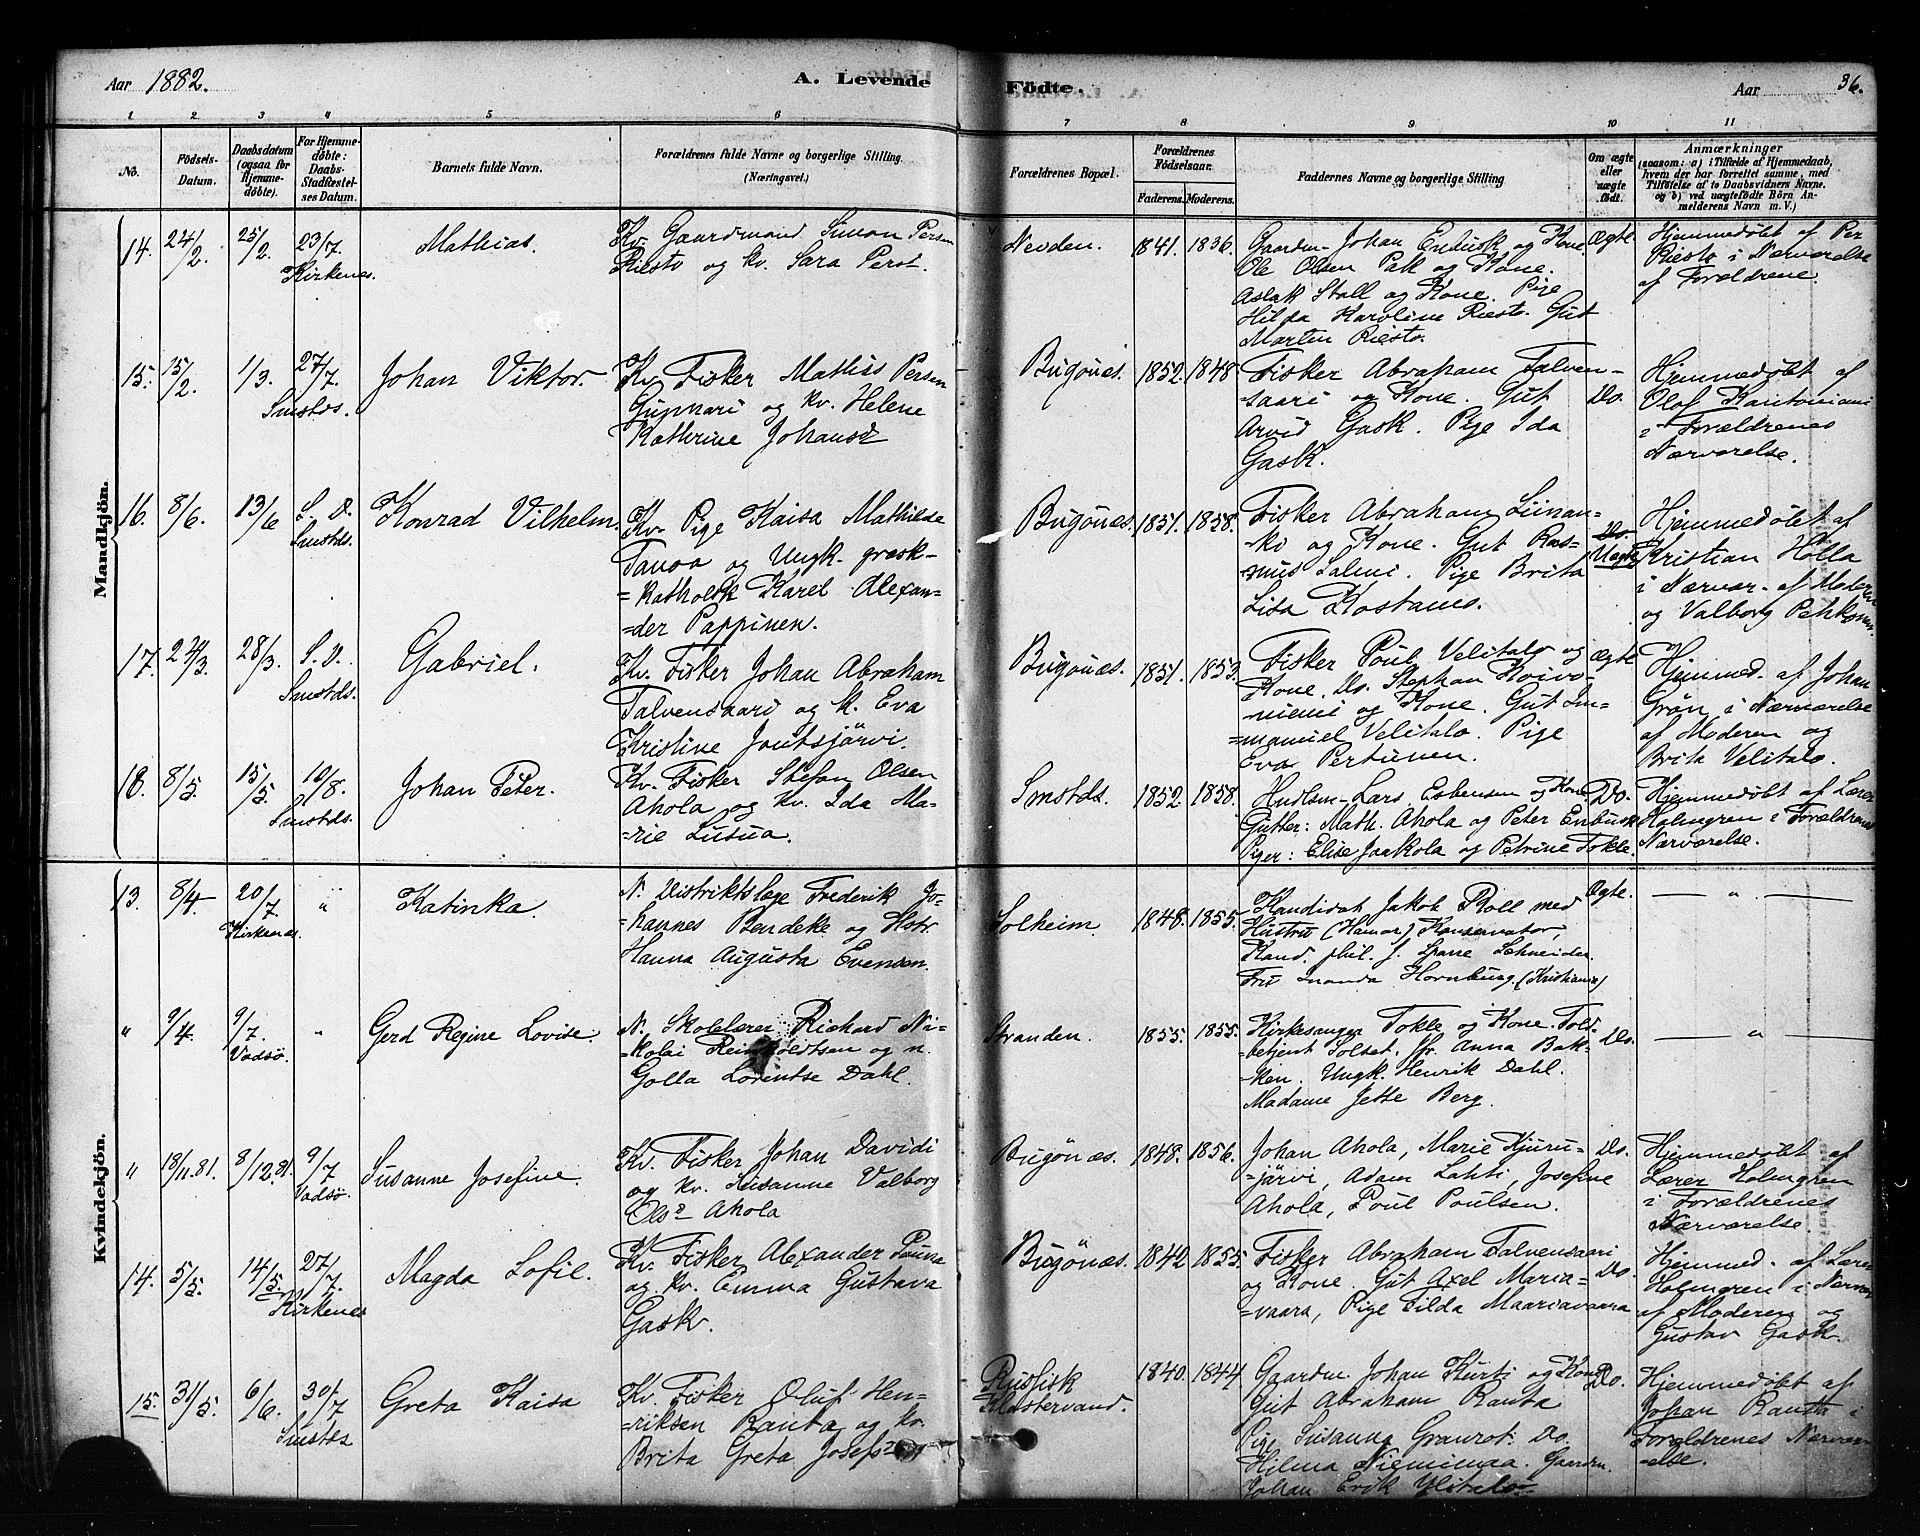 Aar 1882. A. Levende Fødte. Aar 36.
1 2 3 4 5 6 7 8 9 10 11
No.
Fødsels-Datum.
Daabsdatum (ogsaa for Hjemmedøbte).
For Hjemmedøbte: Daabs-Stadfæstelses Datum.
Barnets fulde Navn.
Forældrenes fulde Navne og borgerlige Stilling (Næringsvei.)
Forældrenes Bopæl.
Forældrenes Fødselsaar.
Faderens. Moderens.
Faddernes Navne og borgerlige Stilling
Om ægte eller uægte født.
Anmærkninger
(saasom: a) i Tilfælde af Hjemmedaab,
hvem der har forrettet samme, med
Tilføielse af to Daabsvidners Navne.
og b) ved uægtefødte Børn Anmelderens Navn m. V.)
Mandkjön.
14. 24/2 25/2 23/7 Kirkenes. Mathias.
Kv. Gaardmand Simon Persen
Riesto og kv. Sara Persd.
Nevden. 1841. 1836.
Gaardm. Johan Enbusk og Kone.
Ole Olsen Pak og Kone.
Aslak Stall og Kone. Pige
Hilda Karoline Riesto. Gut
Marten Riesto.
Ægte
Hjemmedøbt af Per
Riesto i Nærværelse
af Forældrene.
15. 15/2 1/3. 27/7. Smstds. Johan Viktor.
Kv. Fisker Mathis Persen
og kv. Helene
Kathrine Johansd
Bugønes. 1852. 1848
Fisker Abraham Talven-
-saari og Kone. Gut
Arvid Gask. Pige Ida
Gask.
Do.
Hjemmedøbt af
Olof Kantoniemi
i Forældrenes
Nærværelse.
16. 8/6. 13/6 S. D. Smstds. Konrad Vilhelm.
Kv. Pige Kaisa Mathilde
Tavoa og Ungk. græsk-
=katholsk Karel Alexan-
=der Pappinen.
Bugønes. 1851. 1858.
Fisker Abraham Liinan-
-ki og Kone. Gut Ras-
mus Salmi. Pige Brita
Lisa Kostamo.
Do.
Uægte
Hjemmedøbt af
Kristian Holla
i Nærvær. af Moderen
og Valborg Pekkonen.
17. 24/3 28/3. S. D. Smstds. Gabriel.
Kv. Fisker Johan Abraham
Talvensaari og k. Eva
Kristine Jontsjärvi.
Bugønæs. 1851. 1853.
Fisker Poul Velitalo og
Kone. Do. Stephan Koivo-
niemi og Kone. Gut Im-
=manuel Velitalo. Pige
Eva Pertunen.
Ægte
Hjemmed. af Johan
Grön i Nærværelse
af Moderen og
Brita Velitalo.
18. 8/5. 15/5. 10/8. Smstds. Johan Peter.
Kv. Fisker Stefan Olsen
Ahola og kv. Ida Ma-
=rie Lusua.
Smstds. 1852. 1858.
Hudlsm. Lars Esbensen og Kone
Gutter: Math. Ahola og Peter Enbusk
Piger: Elise Jaakola og Petrine Tokle.
Do.
Hjemmedøbt af Lærer
Holmgren i Forældrenes
Nærværelse.
Kvindekjön.
13. 8/4 20/7. Kirkenes. " Katinka.
N. Distriktslæge Frederik Jo-
=hannes Bendeke og Hstr.
Hanna Augusta Evensen.
Solheim. 1848. 1855.
Kandidat Jakob Roll med
Hustru (Hamar) Konservator,
Kand. phil. J. Sparre Schneider
Fru Hornburg. (Kristiania)
Ægte.
— " —
" 9/4. 9/7 Vadsø. " Gerd Regine Lovise.
N. Skolelærer Richard Ni-
kolai Reinholdtsen og n.
Golla Lorentse Dahl.
Stranden. 1855. 1855.
Kirkesanger Tokle og Kone. Told-
betjent Solset. Jfr. Anna Bak-
-ken. Ungk. Henrik Dahl.
Madame Jette Berg.
Do.
— " —
" 18/11.81. 8/12.81. 9/7 Vadsø. Susanne Josefine.
Kv. Fisker Johan Davidi
og kv. Susanne Valborg
Olsd Ahola
Bugönæs. 1848. 1856.
Johan Ahola, Marie Kjuru-
=järvi, Adam Lahti, Josefine
Ahola, Poul Poulsen.
Do.
Hjemmedøbt af
Lærer Holmgren
i Forældrenes
Nærværelse
14. 5/5. 14/5 27/7. Kirkenes Magda Sofie.
Kv. Fisker Alexander
og kv. Emma Gustava
Gask.
Bugönæs. 1842 1855.
Fisker Abraham Talvensaari
og Kone. Gut Axel Maria-
=vaara, Pige Tilda Maariavaara
Do.
Hjemmed. af Lærer
Holmgren i Nærvær
af Moderen og
Gustav Gask.
15. 31/5. 6/6 30/7 Smstds Greta Kaisa
Kv. Fisker Oluf Hen-
=riksen Ranta og kv.
Brita Greta Josefsd
Russisk
Klostervand. 1840. 1844
Gaardm. Johan Kurti og Kone
Gut Abraham Ranta
Pige Susanna Granrot. Do.
Hilma Nieminaa. Gaardm.
Johan Erik Ylitalo
Do.
Hjemmedøbt af
Johan Ranta i
Forældrenes Nærvær-
-else.